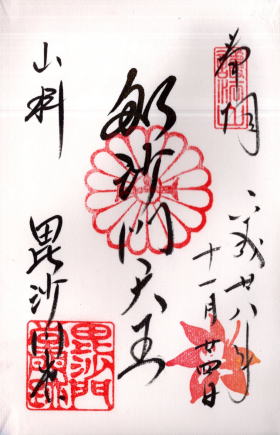 奉拝
平成廿八年
十一月廿四日
毘沙門天王
山科
毘沙門堂
毘沙門